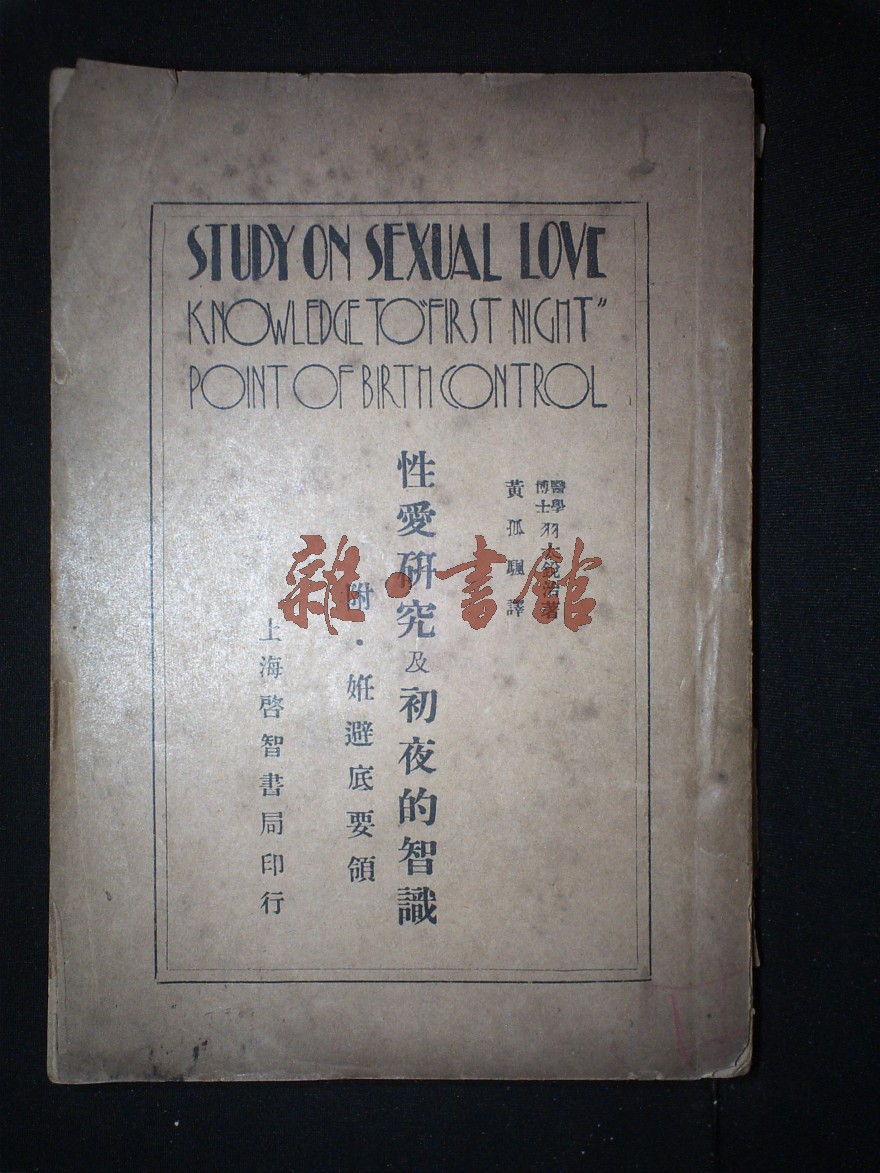 STUDY ON SEXUAL LOVE
KNOWLEDGE TO "FIRST NIGHT"
POINT OF BIRTH CONTROL
醫學博士 羽太銳治著
黃孤飄譯
性愛硏究及初夜的智識
附·姙避底要領
上海啓智書局印行
雜·書館